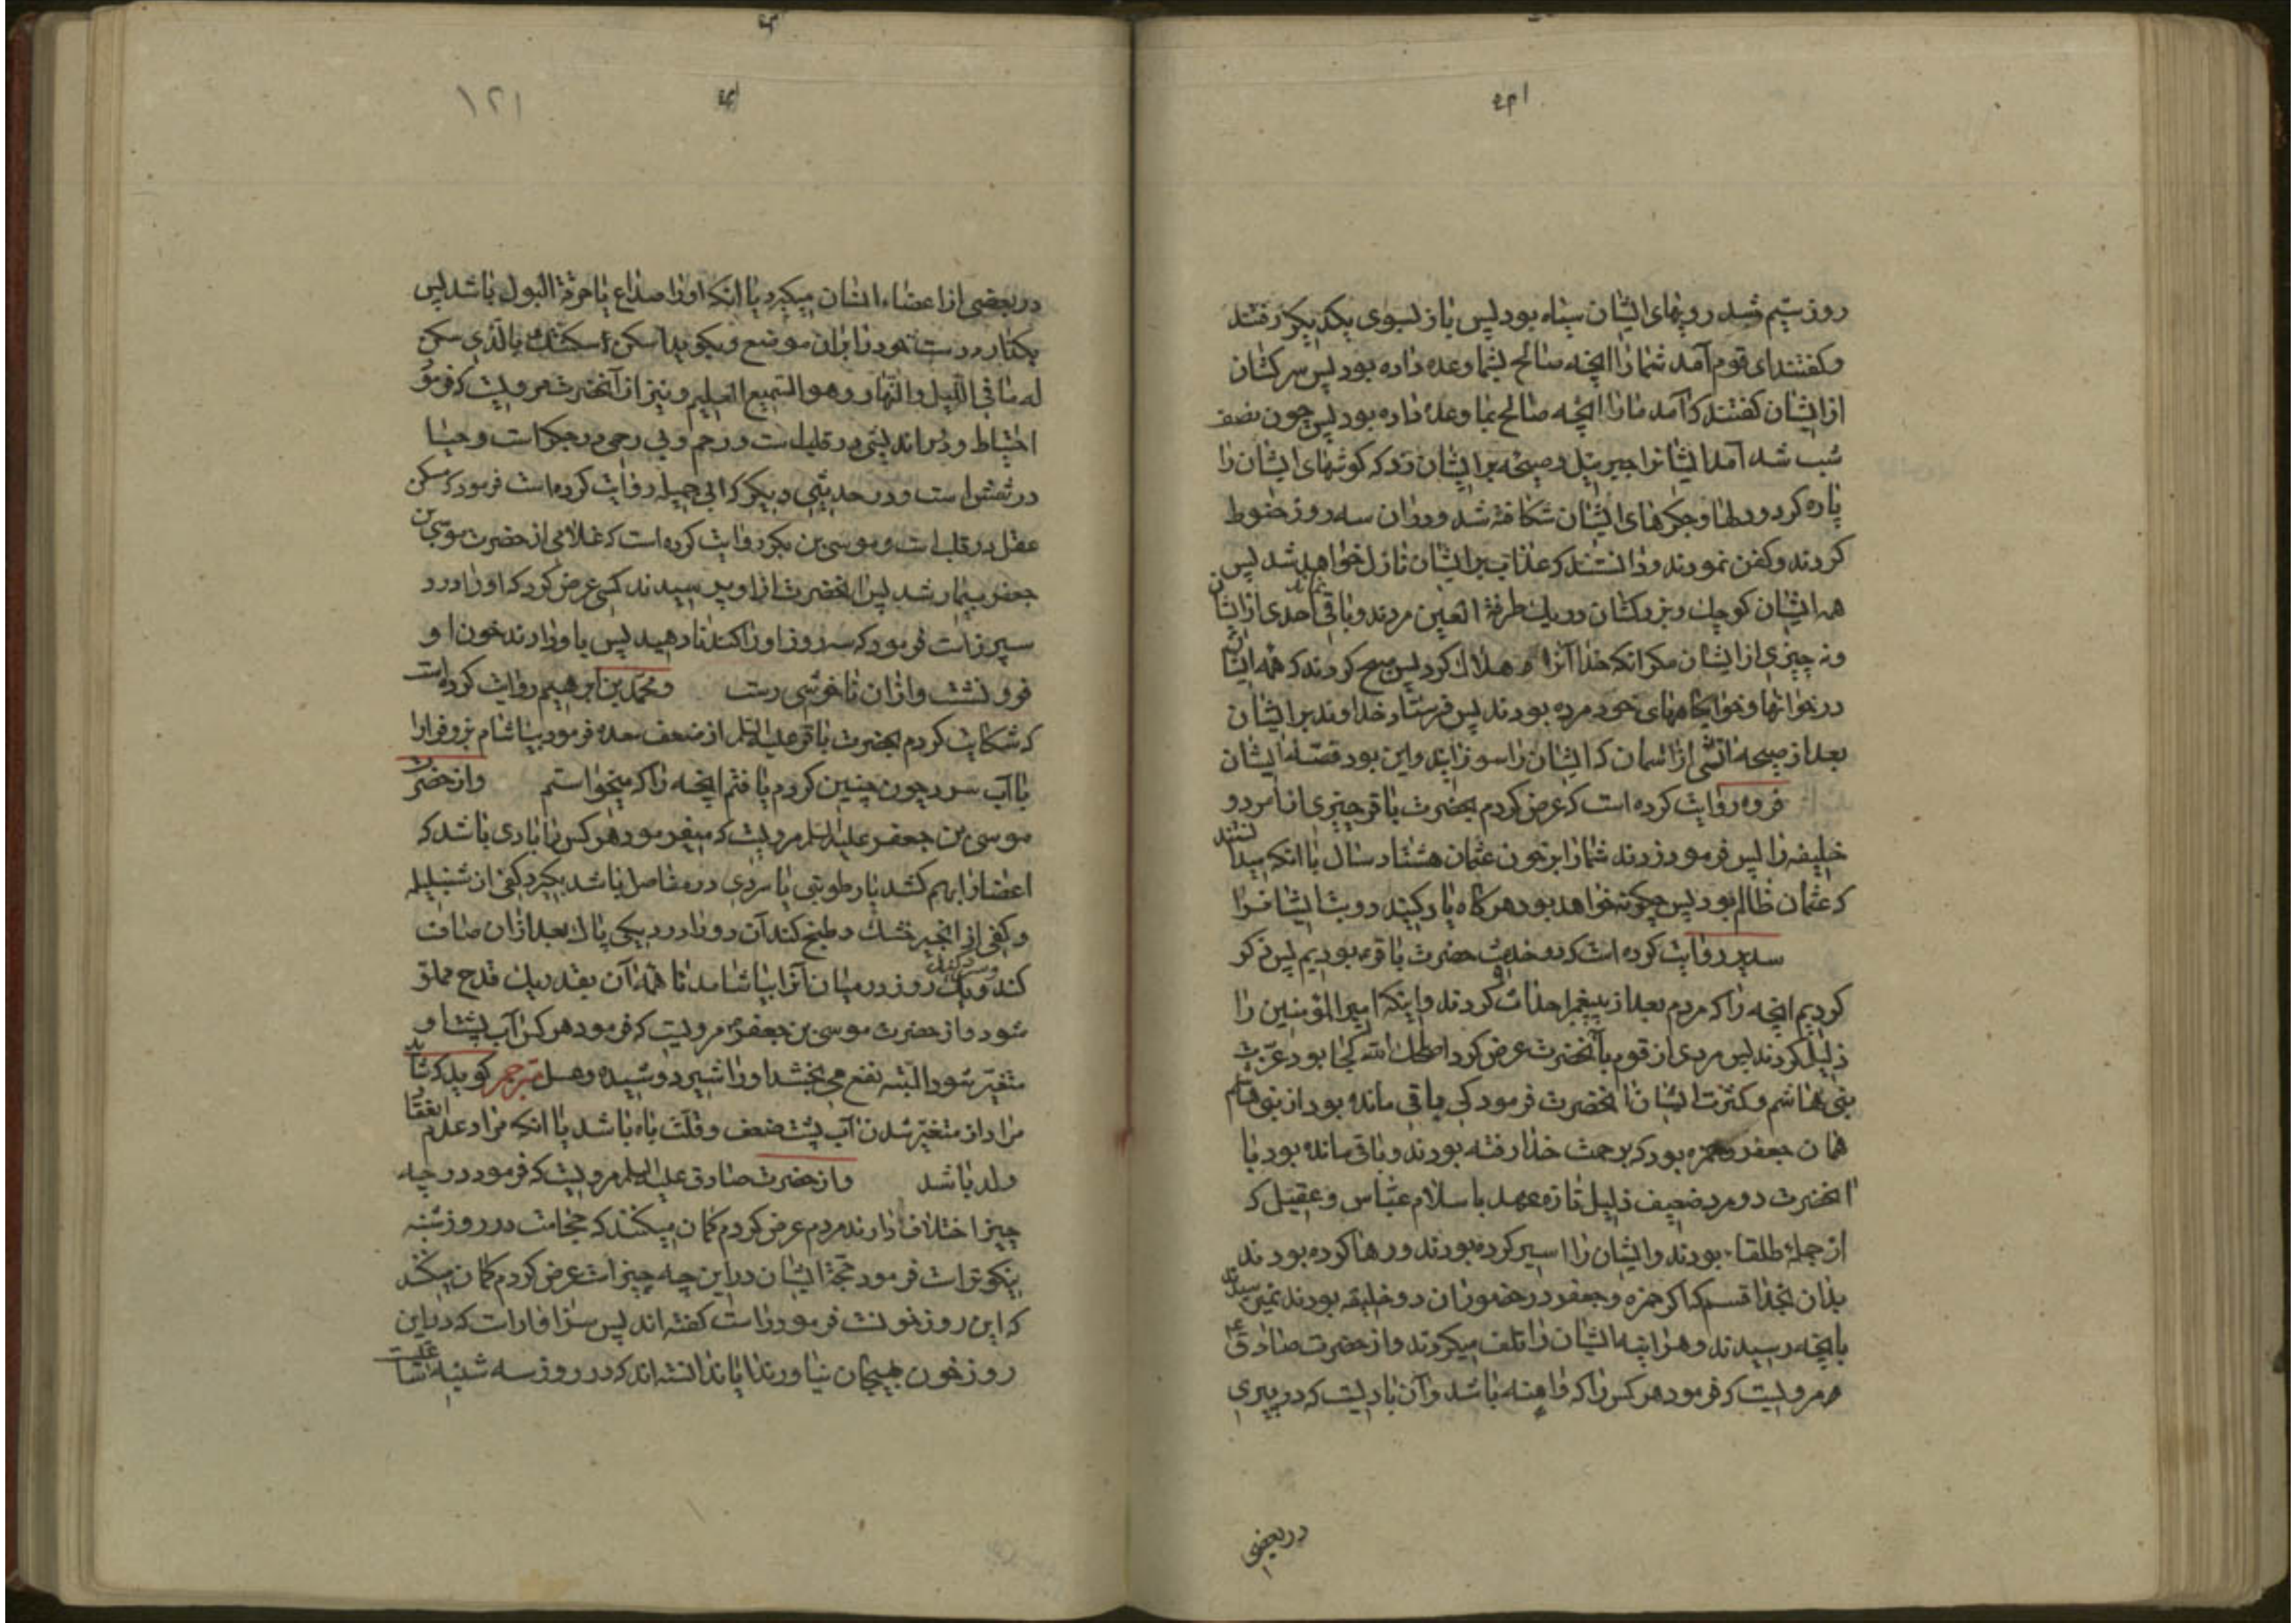 روز سیم شد رویهای ایشان سیاه بود پس باز بسوی یکدیکر رفتند
وکفتند ای قوم آمد شما را انچه صالح بشما وعده داده بود پس سرکشان
از ایشان کفتند که آمد ما را انچه صالح بما وعده داده بود پس چون نصف
شب شد آمد ایشانرا جبرئیل و صیحه بر ایشان زد که کوشهای ایشان را
پاره کرد و دلها و جکرهای ایشان شکافته شد و در ان سه روز حنوط
کردند و کفن نمودند و دانستند که عذاب بر ایشان نازل خواهد شد پس
همه ایشان کوچك و بزرکشان در یك طرفة العین مردند و باقی نماند احدی از ایشان
و نه چیزی از ایشان مکر انکه خدا آنرا هلاك کرد پس صبح کردند که همه ایشان
در خوانها و خوابکاههای خود مرده بودند پس فرستاد خداوند بر ایشان
بعد از صیحه اتشی از اسمان که ایشان را سوزانید و این بود قصّه ایشان
فروه روایت کرده است که عرض کردم بحضرت باقر چیزی از امر دو
خلیفه را پس فرمود زدند شما را بر خون عثمان هشتاد سال با انکه میدانستند
که عثمان ظالم بود پس چکونه خواهد بود هر کاه یاد کنید دو بت ایشانرا
سدیر روایت کرده است که در خدمت حضرت باقر بودیم پس ذکر
کردیم انچه را که مردم بعد از پیغمبر احداث کردند و اینکه امیر المؤمنین را
ذلیل کردند پس مردی از قوم بآنحضرت عرض کرد اصلحك الله کجا بود عزّت
بنی هاشم و کثرت ایشان انحضرت فرمود کی باقی مانده بود از بنی هاشم
همان جعفر و حمزه بود که برحمت خدا رفته بودند و باقی مانده بود با
انحضرت دو مرد ضعیف ذلیل تازه عهد باسلام عبّاس و عقیل که
از جملۀ طلقاء بودند و ایشان را اسیر کرده بودند و رها کرده بودند
بدان بخدا قسم که اکر حمزه و جعفر در حضور ان دو خلیفه بودند نمیرسیدند
بانچه رسیدند و هر اینه ایشان را تلف میکردند و از حضرت صادق ع
مرویست که فرمود هر کس را که واهنه باشد و آن بادیست که در پیری
در بعضی
۱۲۱
در بعضی از اعضاء انسان میکیرد یا انکه او را صداع یا حرقة البول باشد پس
بکذارد دست خود را بر ان موضع و بکوید اسکن اسکنتك بالّذی سکن
له ما فی اللّیل والنّهار وهو السّمیع العلیم و نیز از آنحضرت مرویست که فرمود
احتیاط و دور اندیشی در قلب است و رحم و بی رحمی در جکر است و حیا
در شش است و در حدیثی دیکر که ابی جمیله روایت کرده است فرمود که مسکن
عقل در قلب است و موسی بن بکر روایت کرده است که غلامی از حضرت موسی بن
جعفر بیمار شد پس انحضرت از او پرسیدند کسی عرض کرد که او را درد
سپرز است فرمود که سه روز او را کندنا دهید پس باو دادند خون او
فرو نشست و از ان ناخوشی رست و محمّد بن ابرهیم روایت کرده است
که شکایت کردم بحضرت باقر علیه السّلم از ضعف معده فرمود بیاشام بزوفرا را
با آب سرد چون چنین کردم یافتم انچه را که میخواستم و از حضرت
موسی بن جعفر علیه السّلم مرویست که میفرمود هر کس را بادی باشد که
اعضا را بهم کشد یا رطوبتی یا سردی در مفاصل باشد بکیرد کفی از شنبلیله
و کفی از انجیر خشك و طبخ کند آن دو را در دیکی پاك بعد از ان صاف
کند و سرد کند و یك روز در میان آنرا بیاشامد تا همه آن بقدر یك قدح مملوّ
شود و از حضرت موسی بن جعفر مرویست که فرمود هر کس آب پشت او
متغیّر شود البته نفع می بخشد او را شیر دوشیده و عسل مترجم کوید که شاید
مراد از متغیّر شدن آب پشت ضعف و قلّت باه باشد یا انکه مراد عدم انعقاد
ولد باشد و از حضرت صادق علیه السلم مرویست که فرمود در چه
چیز اختلاف دارند مردم عرض کردم کمان میکنند که حجامت در روز شنبه
نیکوتر است فرمود حجّة ایشان در این چه چیز است عرض کردم کمان میکنند
که این روز خونست فرمود راست کفته اند پس سزاوار است که در این
روز خون بهیجان نیاورند ایا ندانسته اند که در روز سه شنبه ساعتیست